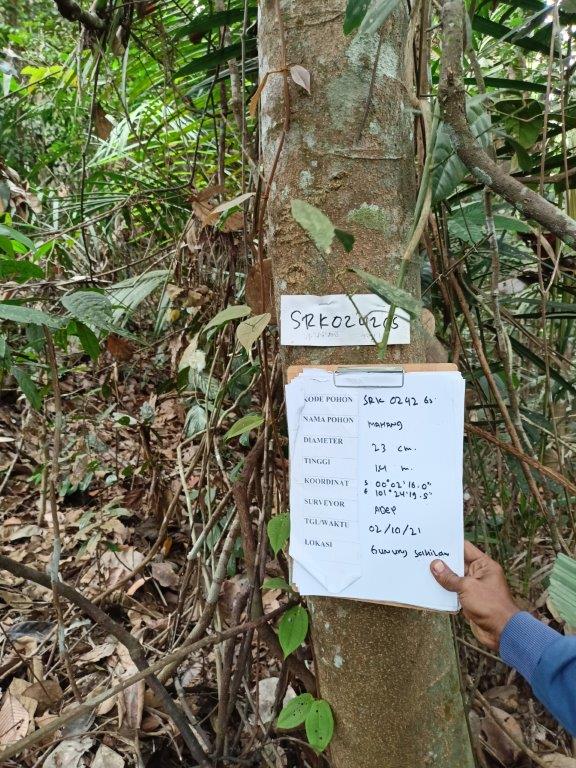 SRK0242GS
KODE POHON SRK 0242 GS.
NAMA POHON MAHANG
DIAMETER 23 cm.
TINGGI 14 m.
KOORDINAT S 00°02'16.0"
E 101°24'19.5"
SURVEYOR ADEP
TGL/WAKTU 02/10/21
LOKASI Gunung Sahilan